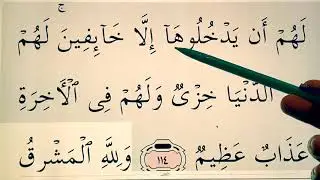 لَهُمْ أَن يَدْخُلُوهَآ إِلَّا خَآئِفِينَ ۚ لَهُمْ
الدُّنْيَا خِزْىٌ وَلَهُمْ فِى ٱلْأَخِرَةِ
عَذَابٌ عَظِيمٌ ١١٤ وَلِلَّهِ ٱلْمَشْرِقُ